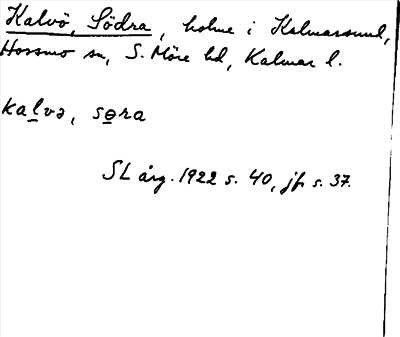 Kalvö, Södra, holme i Kalmarsund,
Hossmo sn, S. Möre hd, Kalmar l.
kalvə, søra
SL årg. 1922 s. 40, jfr s. 37.